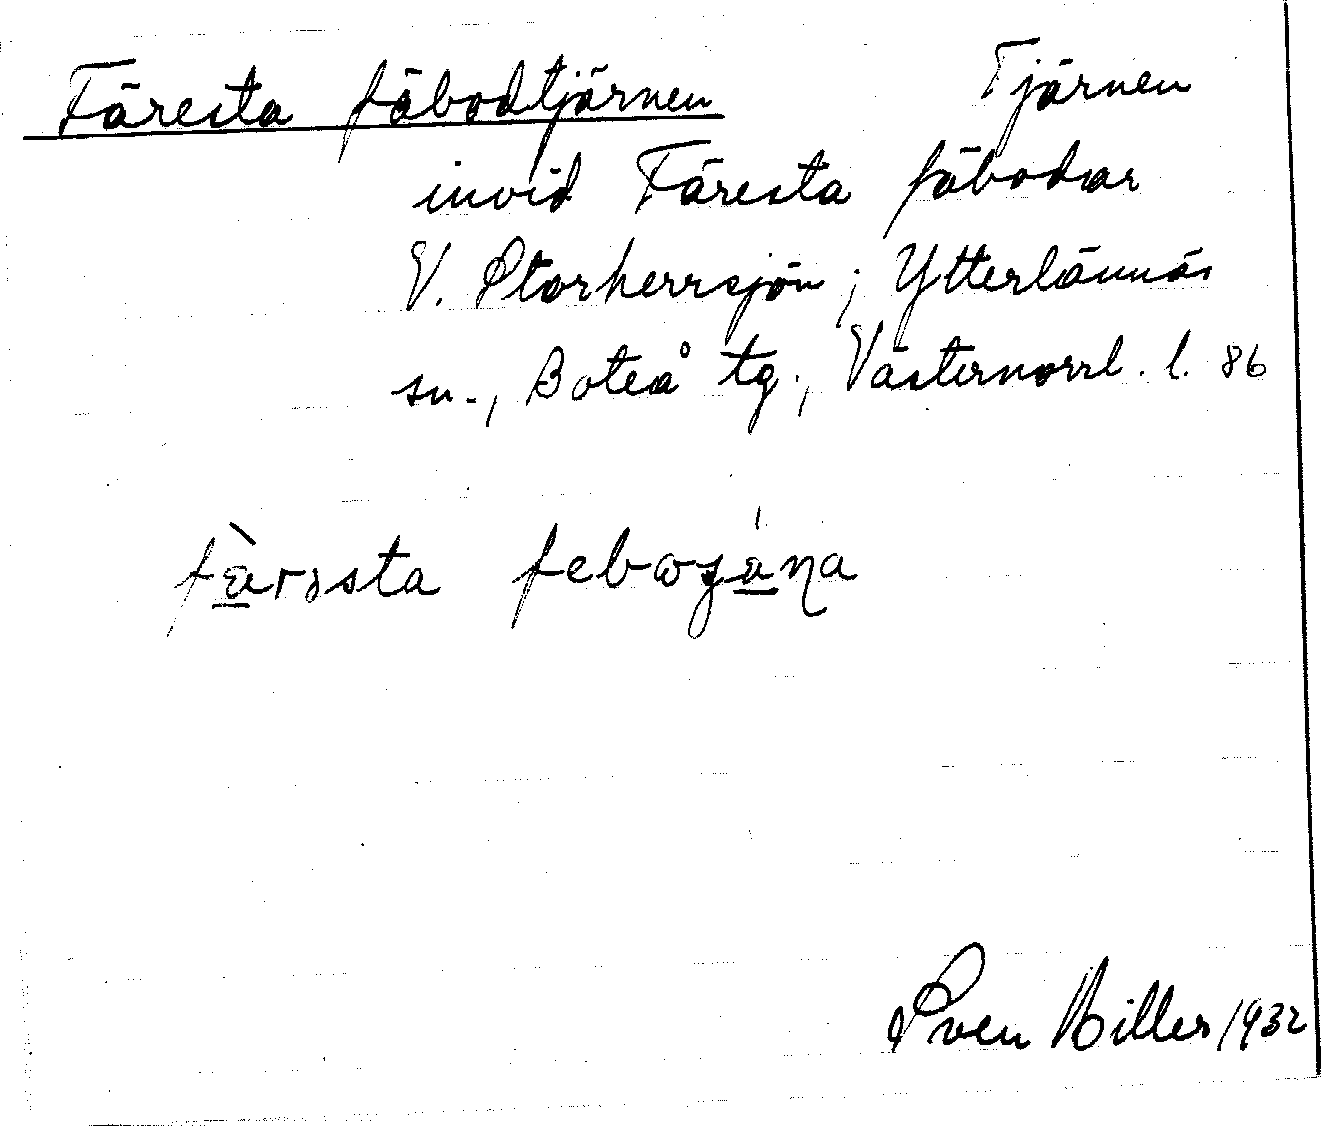 Färesta fäbodtjärnen Tjärnen
invid Färesta fäbodar
V. Storherrsjön; Ytterlännäs
sn., Boteå tg., Västernorrl. l. 86
Sven Hiller 1932